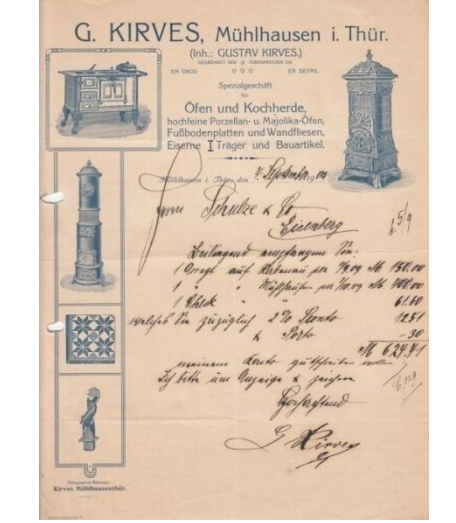 G. KIRVES, Mühlhausen i. Thür.
(Inh.: GUSTAV KIRVES.)
GEGRÜNDET FERNSPRECHER
EN GROS EN DETAIL
Spezialgeschäft
für
Öfen und Kochherde,
hochfeine Porzellan- u. Majolika-Öfen,
Fußbodenplatten und Wandfliesen,
Eiserne I Träger und Bauartikel.
Mühlhausen i. Thür., den 4. September 19
Herrn Schulze & Co
Eisenberg
5/9
Beiliegend empfangen Sie
1 auf per M 150.00
1 " " Mühlhausen per M 400.00
1 Check " " 61.60
welches Sie zuzüglich 2% Skonto 12.51
& Porto -.30
M 624.41
meinem Conto gutschreiben wollen
Ich bitte um Anzeige & zeichne
Hochachtend
G Kirves
Telegramm-Adresse:
Kirves Mühlhausenthür.